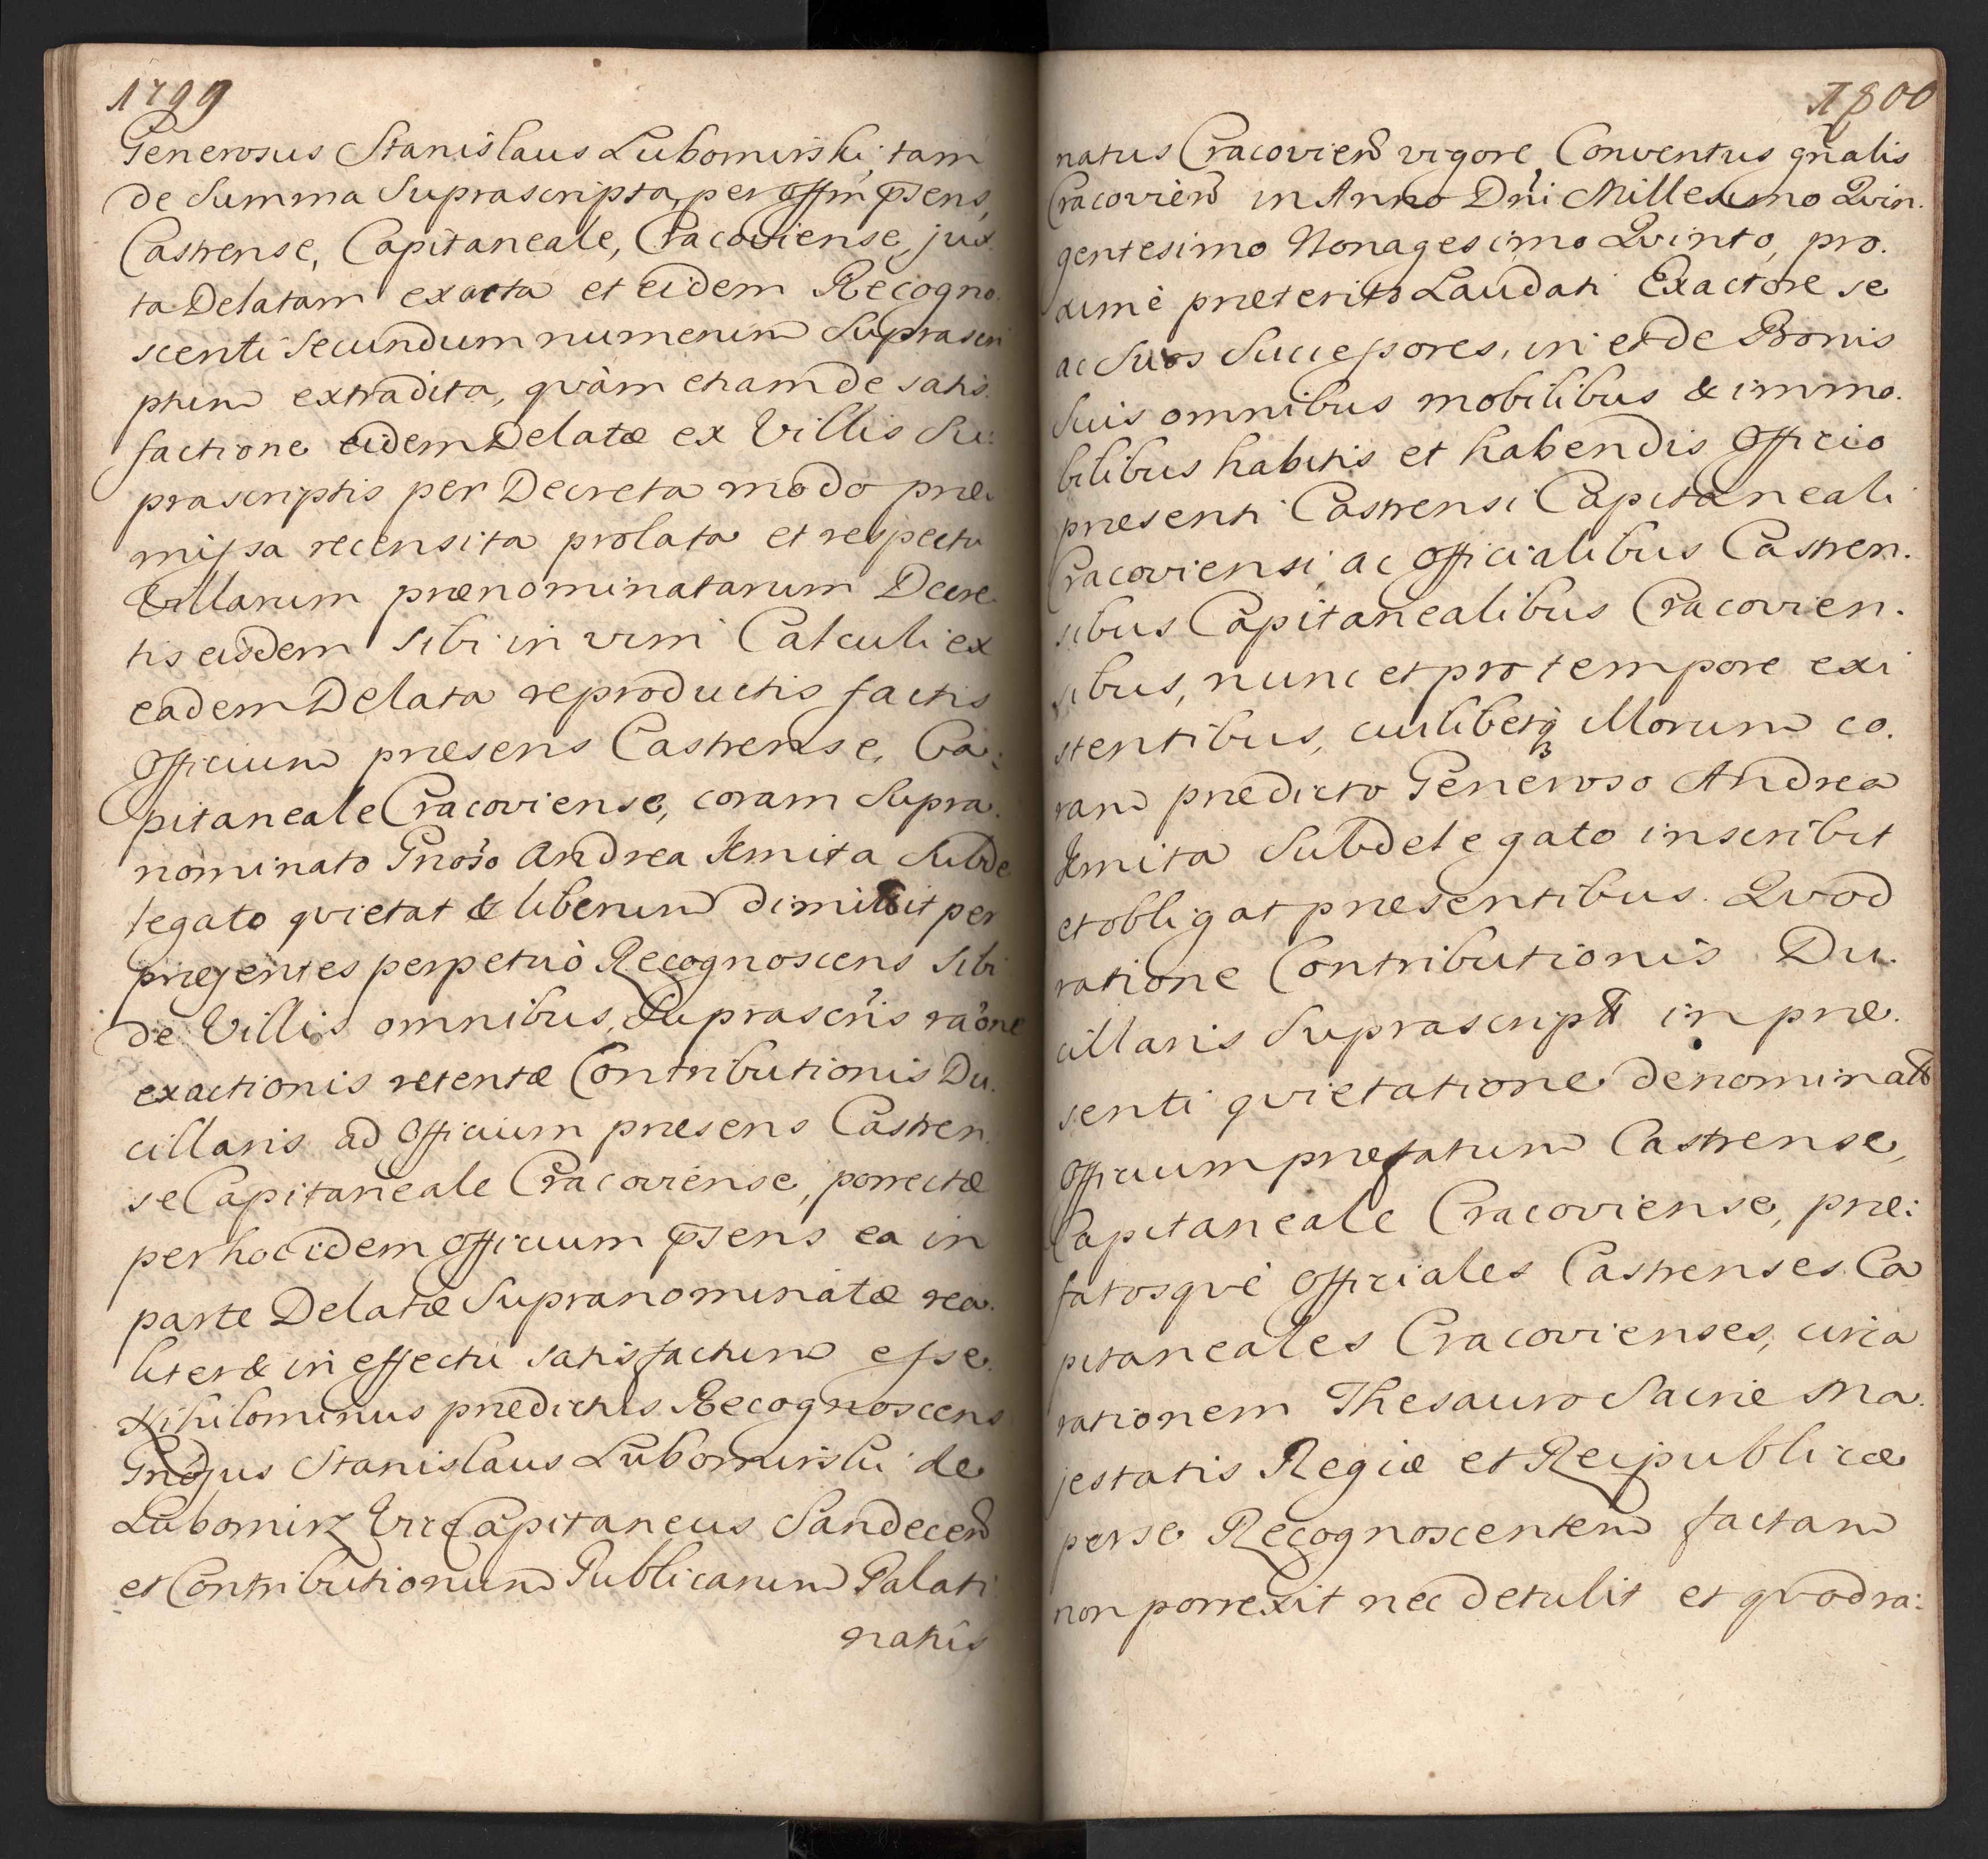 1799
Generosus Stanislaus Lubomirski, tam
de Summa Suprascripta, per Offm p̄sens,
Castrense, Capitaneale, Cracoviense, jux
ta Delatam exacta et eidem Recogno.
scenti secundum numerum Suprascri
ptum extradita, qvàm etiam de satis.
factione eidem Delatæ ex Villis Su:
prascriptis per Decreta modo præ
missa recensita prolata et respectu
Villarum prænominatarum Decre.
tis eisdem sibi in vim Calculi ex
eadem Delata reproductis factis
Officium præsens Castrense, Ca:
pitaneale Cracoviense, coram Supra.
nominato Gnoso Andrea Kmita Subde
legato qvietat & liberum dimittit per
præsentes perpetuò Recognoscens sibi
de Villis omnibus, Suprascris raõne
exactionis retentæ Contributionis Du.
cillaris ad Officium præsens Castren.
se Capitaneale Cracoviense, porrectæ
per hoc idem Officium p̄sens ea in
parte Delatæ Supranominatæ rea.
liter & in effectu satisfactum esse.
Nihilominus prædictus Recognoscens
Gnosus Stanislaus Lubomirski de
Lubomirz ViceCapitaneus Sandecen
et Contributionum Publicarum Palati
natus
1800
natus Cracovien vigore Conventus gnalis
Cracovien in Anno Dni Millesimo Qvin.
gentesimo Nonagesimo Qvinto, pro.
ximè præterito Laudati Exactore se
ac Suos Successores, in et de Bonis
Suis omnibus mobilibus & immo.
bilibus habitis et habendis Officio
præsenti Castrensi Capitaneali
Cracoviensi ac Officialibus Castren.
sibus Capitanealibus Cracovien.
sibus, nunc et pro tempore exi
stentibus, cuilibetq₃ illorum co.
ram prædicto Generoso Andrea
Kmita Subdelegato inscribit
et obligat præsentibus. Qvod
ratione Contributionis Du.
cillaris Suprascript in præ.
senti qvietatione denominat
Officium præfatum Castrense,
Capitaneale Cracoviense, præ:
fatosqvè Officiales Castrenses Ca
pitaneales Cracovienses, circa
rationem Thesauro Sacræ Ma.
jestatis Regiæ et Reipublicæ
per se Recognoscentem factam
non porrexit nec detulit et qvod ra: